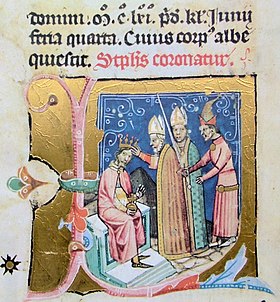 domini. oͦ. c̄. lxi. p̄o. kl̄. Junij
feria quarta. Cuius corp⁹ albe
quiescit. Stph̄s coronatur.